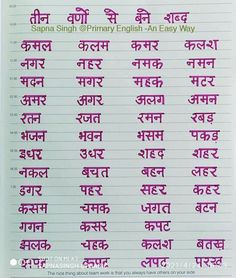 तीन वर्णो से बने शब्द
Sapna Singh @Primary English -An Easy Way
कमल कलम कमर कलश
नगर नहर नमक नमन
मदन मगर महक मटर
अमर अगर अलग अमन
रतन रजत रमन रबड़
भजन भवन भसम पकड़
इधर उधर शहद शहर
नकल बचत बहन लहर
डगर पहर सहर कहर
कसम चमक जगत बटन
गगन कसर कपट
झलक चहक कलश बतख
कपट लपट परख
The nice thing about team work is that you always have others on your side